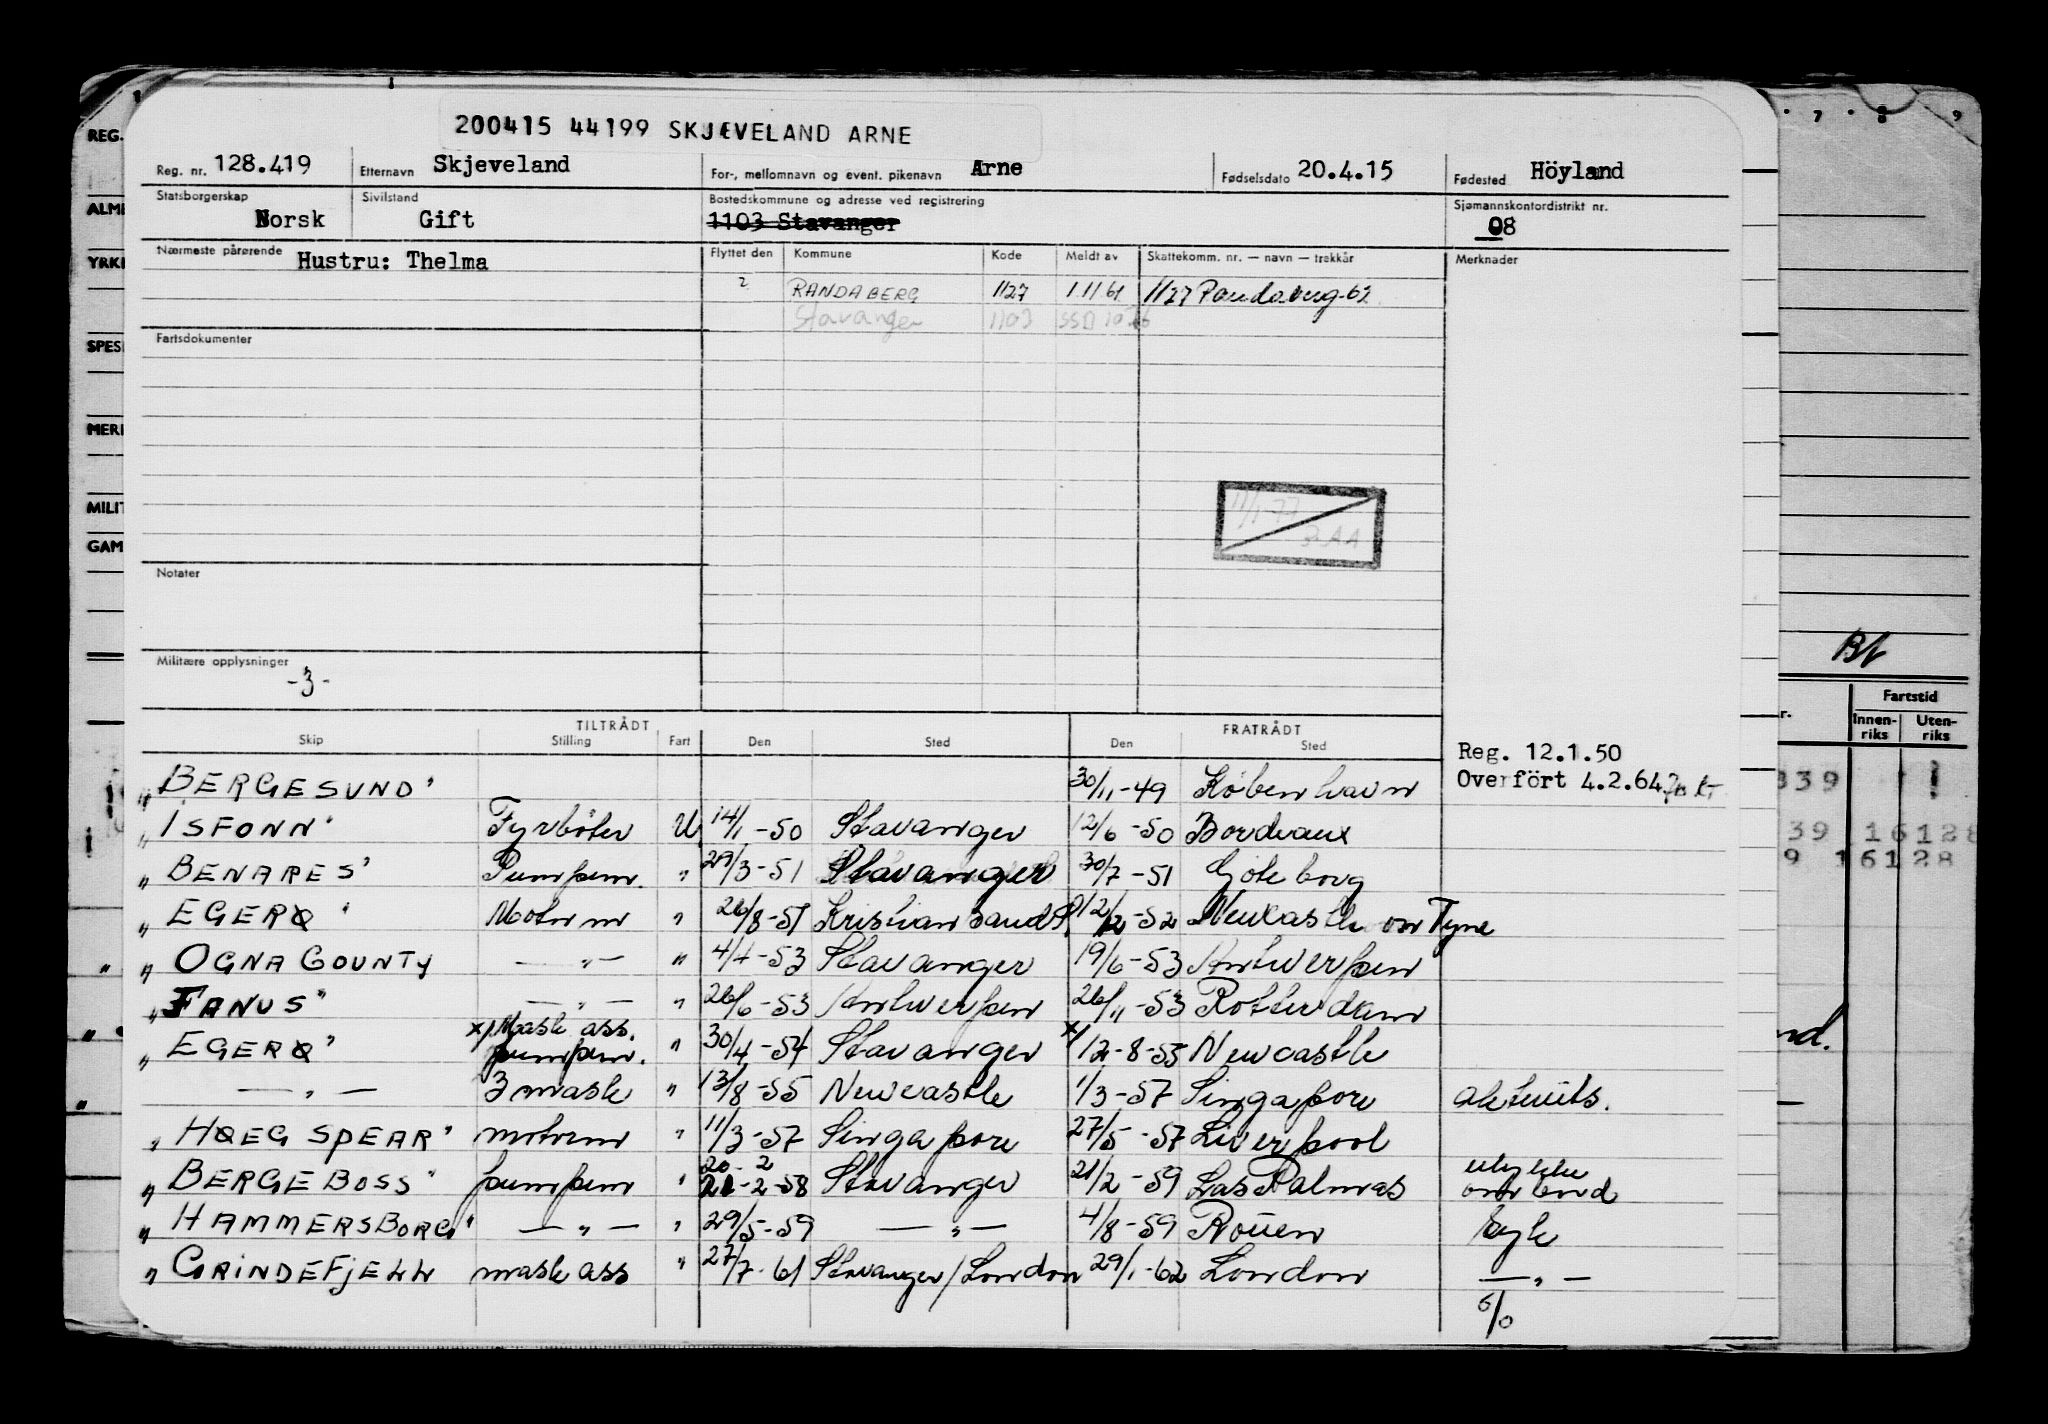 7 8 9
200415 44199 SKJÆVELAND ARNE
REG.
Reg. nr. 128.419 Etternavn Skjeveland For-, mellomnavn og event. pikenavn Arne Fødselsdato 20.4.15 Fødested Höyland
ALME
Statsborgerskap Norsk Sivilstand Gift Bostedskommune og adresse ved registrering 1103 Stavanger Sjømannskontordistrikt nr. 08
YRKE
Nærmeste pårørende Hustru: Thelma Flyttet den Kommune Kode Meldt av Skattekomm. nr. — navn — trekkår Merknader
? RANDABERG 1127 1 11 61 1127 Randaberg-62
Stavanger 1103
SPES
Fartsdokumenter
MERI
MILIT
11/1-77
GAM
Notater
Militære opplysninger
-3-
Fartstid
Innenriks Utenriks
TILTRÅDT FRATRÅDT
Skip Stilling Fart Den Sted Den Sted
Reg. 12.1.50
Overfört 4.2.64
„BERGESUND" 30/11-49 København
„ISFONN" Fyrbøter U 14/1-50 Stavanger 12/6-50 Bordeaux
„BENARES" Pumpem. " 29/3-51 Stavanger 30/7-51 Gøteborg
„EGERØ" Motorm " 26/8-51 Kristiansand S. 12/12-52 Newcastle on Tyne
„OGNA COUNTY —"— " 4/4-53 Stavanger 19/6-53 Antwerpen
„FANUS" —"— " 26/6-53 Antwerpen 26/11-53 Rotterdam
„EGERØ" x/Mask ass. pumpem. " 30/4-54 Stavanger x/12-8-55 Newcastle
—"— 3 mask " 13/8-55 Newcastle 1/3-57 Singapore
„HØEG SPEAR" motorm " 11/3-57 Singapore 27/5-57 Liverpool
20-2
„BERGE BOSS" pumpem " 21-2-58 Stavanger 21/2-59 Las Palmas ulykke ombord
„HAMMERSBORG" —"— " 29/5-59 —"— 4/8-59 Rouen syk
„GRINDEFJELL mask ass " 27/7-61 Stavanger/London 29/1-62 London —"—
839
39 16128
9 16128